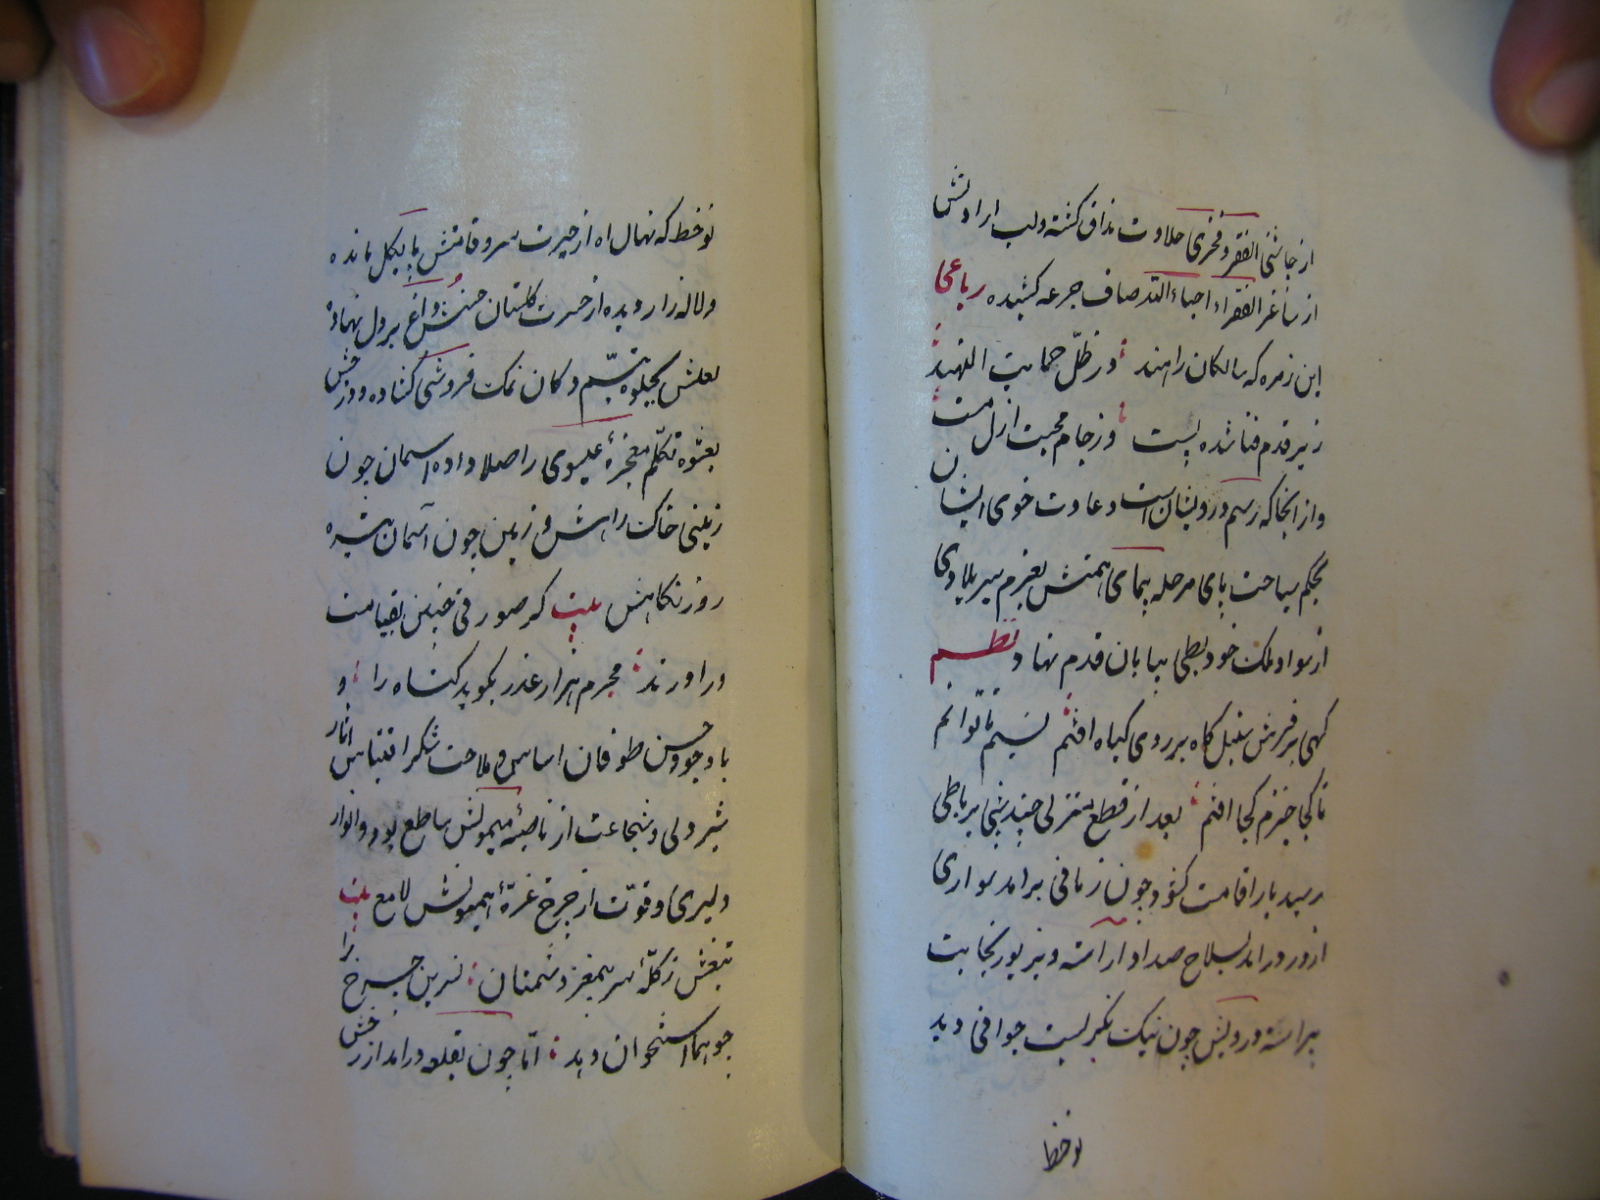 از چاشنی الفقر فخری حلاوت مذاق کشته ولب ارادتش
از ساغر الفقراء احباء الله صاف جرعه کشیده رباعی
این زمره که سالکان راهند در ظلّ حمایت الهند
زیر قدم فنا شده پست وز جام محبت ازل مست
واز انجا که رسم درویشان است و عادت خوی ایشان
بحکم سیاحت پای مرحله پیمای همتش بعزم سیر بلادی
از سواد ملک خود بطی بیابان قدم نهاد نظم
کهی بر فرش سنبل کاه بر روی کیاه افتم نسیم ناتوانم
تا کجا خیزم کجا افتم بعد از قطع منزلی چند شبی برباطی
رسید بار اقامت کشود چون زمانی برامد سواری
از در درامد بسلاح صداد اراسته و بزیور نجابت
پیراسته درویش چون نیک نکریست جوانی دید
نوخط
نوخط که نهال اه از حیرت سرو قامتش پا بکل مانده
ولاله زار دیده از حسرت کلستان حسنش داغ بر دل نهاده
لعلش بجلوه تبسّم دکان نمک فروشی کشاده ودرخش
بعشوه تکلّم معجزهٔ عیسوی را صلا داده اسمان چون
زمینی خاک راهش و زمین چون آسمان تیره
روز نکاهش بیت کر صورتی چنین بقیامت
در اورند مجرم هزار عذر بکوید کناه را و
با وجود حسن طوفان اساس و ملاحت شکر اقتباس اثار
شیر دلی و شجاعت از ناصیهٔ میمونش ساطع بود و انوار
دلیری و قوّت از چرخ غرّهٔ همیونش لامع بیت
تیغش ز کلّهٔ سر بیمغز دشمنان نسرین چرخ را
چو هما استخوان دهد امّا چون بقلعه درامد از رخش